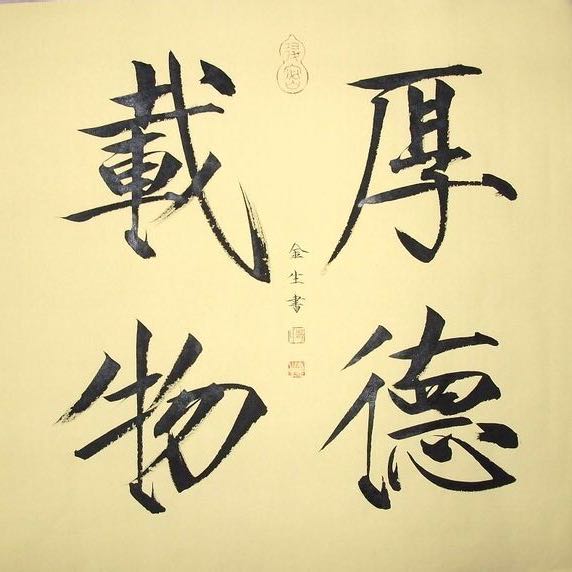 厚德
載物
金生書